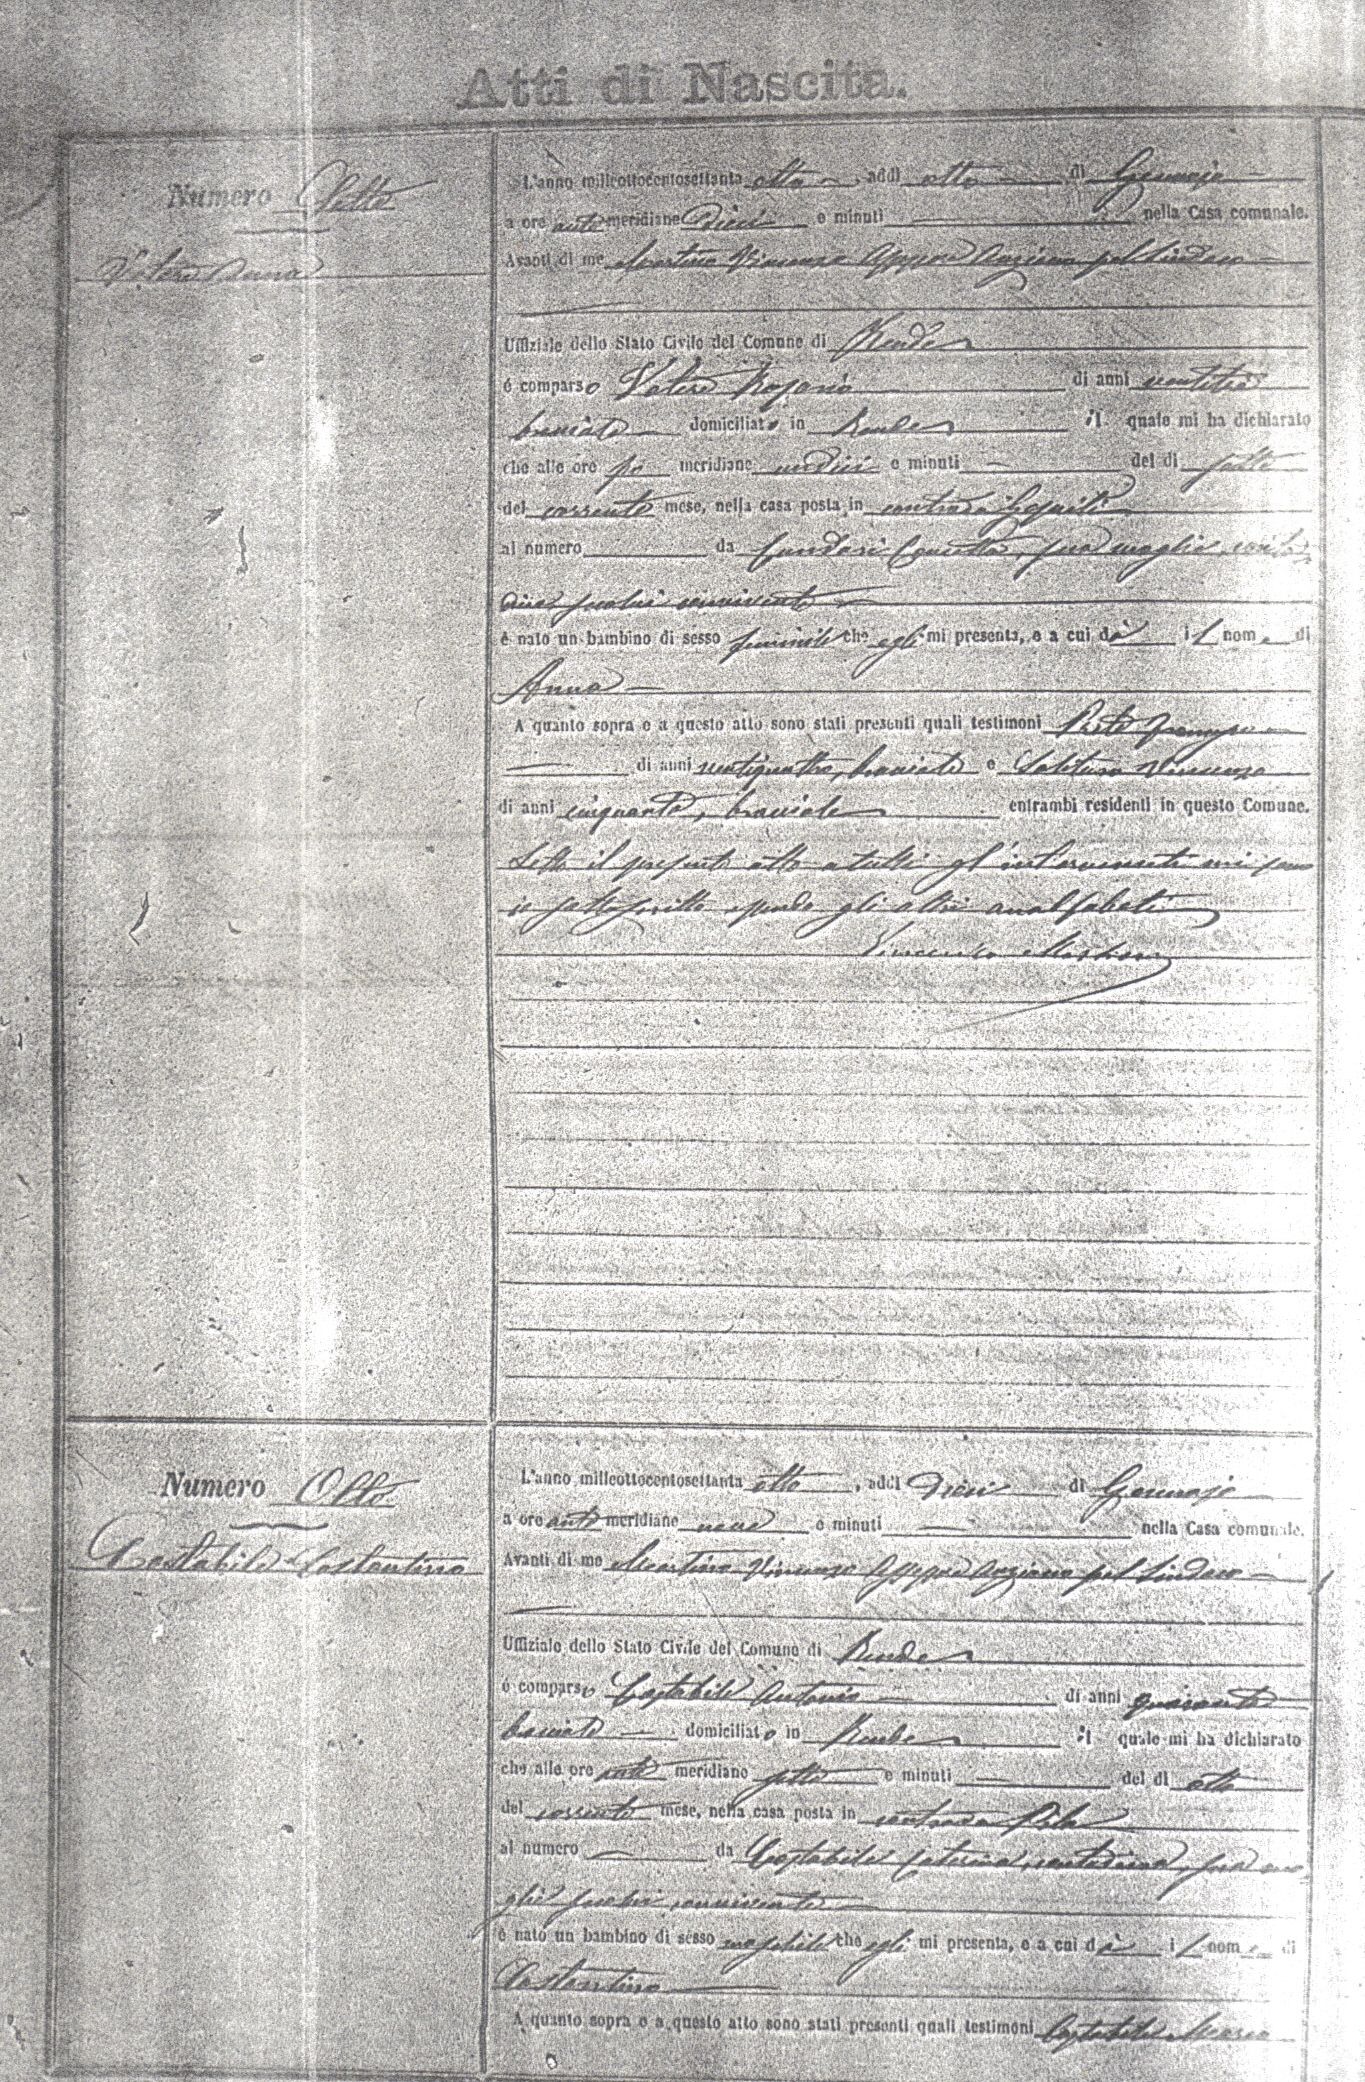 Atti di Nascita.
Numero Sette
Valere Anna
L'anno milleottocentosettanta otto, addì otto di Gennajo
a ore ante meridiane dieci e minuti nella Casa comunale.
Avanti di me Martino Vincenzo Assessore Anziano pel Sindaco
Uffiziale dello Stato Civile del Comune di Rende
è comparso Valere di anni ventitre
bracciale domiciliato in Rende il quale mi ha dichiarato
che alle ore po meridiane undici e minuti del dì sette
del corrente mese, nella casa posta in contrada
al numero da Concetta, sua moglie, conta
secolui convivente
è nato un bambino di sesso feminile che egli mi presenta, e a cui dà il nome di
Anna
A quanto sopra e a questo atto sono stati presenti quali testimoni
di anni ventiquattro, bracciale e Vincenzo
di anni cinquanta, bracciale entrambi residenti in questo Comune.
Letto il presente atto a tutti gl'intervenuti mi sono
io sottoscritto essendo gli altri analfabeti
Vincenzo Martino
Numero Otto
Costabile Costantino
L'anno milleottocentosettanta otto, addì Dieci di Gennajo
a ore ante meridiane nove e minuti nella Casa comunale.
Avanti di me Martino Vincenzo Assessore Anziano pel Sindaco
Uffiziale dello Stato Civile del Comune di Rende
è comparso Costabile Antonio di anni quaranta
bracciale domiciliato in Rende il quale mi ha dichiarato
che alle ore ante meridiane sette e minuti del dì otto
del corrente mese, nella casa posta in contrada
al numero da Costabile sua mo
glie secolui convivente
è nato un bambino di sesso maschile che egli mi presenta, e a cui dà il nome di
Costantino
A quanto sopra e a questo atto sono stati presenti quali testimoni Costabile